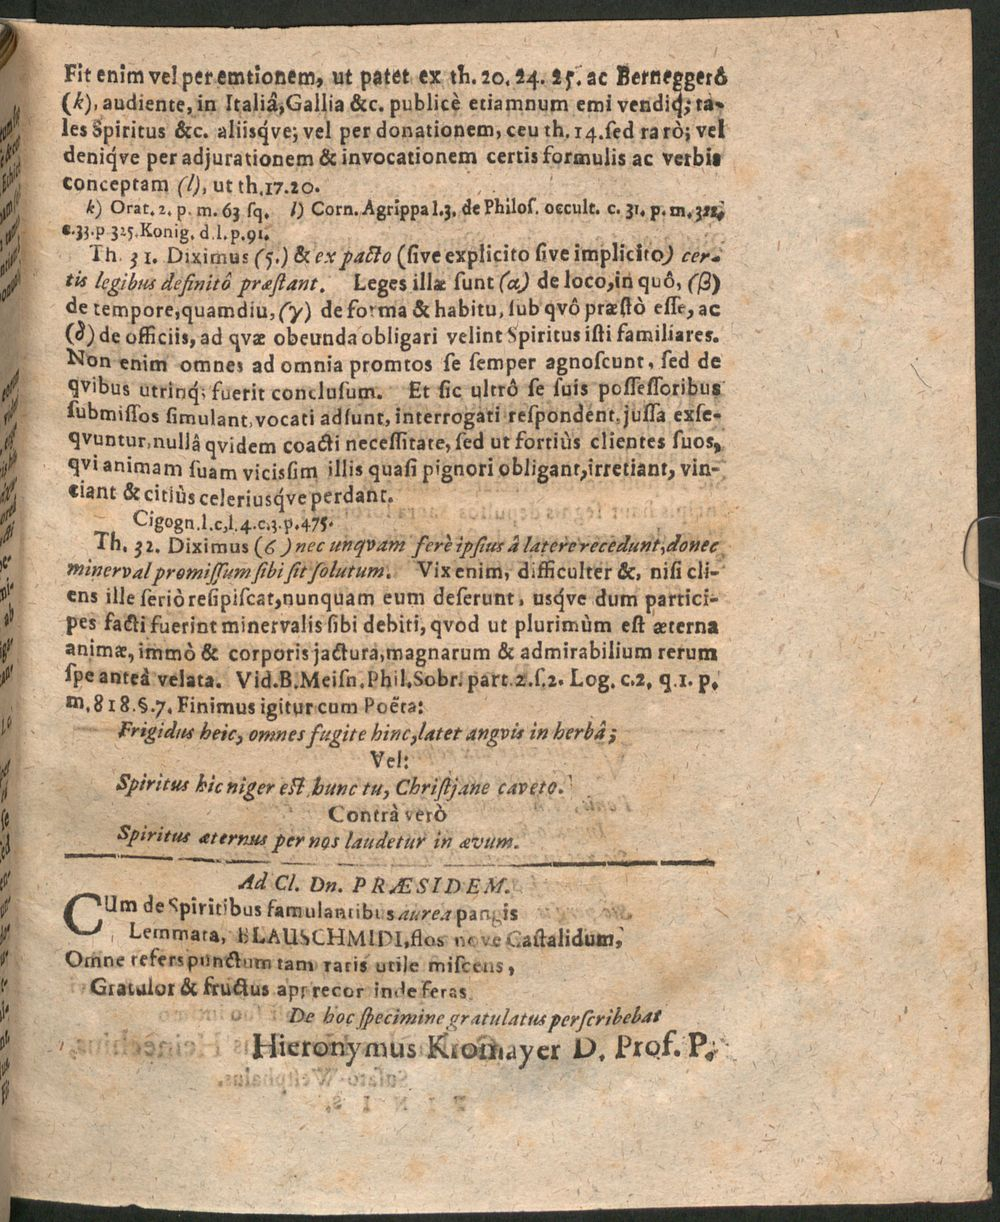 Fit enim vel per emtionem, ut patet ex th. 20. 24. 25. ac Berneggerô
(k), audiente, in Italiâ, Gallia &c. publicè etiamnum emi vendiq́; ta-
les Spiritus &c. aliisq́ve; vel per donationem, ceu th. 14. sed rarò; vel
deniq́ve per adjurationem & invocationem certis formulis ac verbis
conceptam (l), ut th. 17. 20.
k) Orat. 2. p. m. 63 sq. l) Corn. Agrippa l. 3. de Philos. occult. c. 31. p. m. 322,
c. 33. p 325. Konig. d. l. p. 91.
Th. 31. Diximus (5.) & ex pacto (sive explicito sive implicito) cer-
tis legibus definitô præstant. Leges illæ sunt (α) de loco, in quô, (β)
de tempore, quamdiu, (γ) de forma & habitu, sub qvô præstò esse, ac
(δ) de officiis, ad qvæ obeunda obligari velint Spiritus isti familiares.
Non enim omnes ad omnia promtos se semper agnoscunt, sed de
qvibus utrinq́; fuerit conclusum. Et sic ultrô se suis possessoribus
submissos simulant, vocati adsunt, interrogati respondent, jussa exse-
qvuntur, nullâ qvidem coacti necessitate, sed ut fortiùs clientes suos,
qvi animam suam vicissim illis quasi pignori obligant, irretiant, vin-
ciant & citiùs celeriusq́ve perdant.
Cigogn. l. c, l. 4. c. 3. p. 475.
Th. 32. Diximus (6) nec unqvam ferè ipsius â latere recedunt, donec
minerval promissum sibi sit solutum. Vix enim, difficulter &, nisi cli-
ens ille seriò resipiscat, nunquam eum deserunt, usq́ve dum partici-
pes facti fuerint minervalis sibi debiti, qvod ut plurimùm est æterna
animæ, immò & corporis jactura, magnarum & admirabilium rerum
spe anteà velata. Vid. B. Meisn. Phil. Sobr. part. 2. s. 2. Log. c. 2, q. 1. p.
m. 818. §. 7. Finimus igitur cum Poëta:
Frigidus heic, omnes fugite hinc, latet angvis in herbâ;
Vel:
Spiritus hic niger est, hunc tu, Christjane caveto.
Contrà verò
Spiritus æternus per nos laudetur in ævum.
Ad Cl. Dn. PRÆSIDEM.
CUm de Spiritibus famulantibus aurea pangis
Lemmata, BLAUSCHMIDI, flos nove Castalidum,
Omne refers punctum tam raris utile miscens,
Gratulor & fructus apprecor inde feras
De hoc specimine gratulatus perscribebat
Hieronymus Kromayer D. Prof. P.